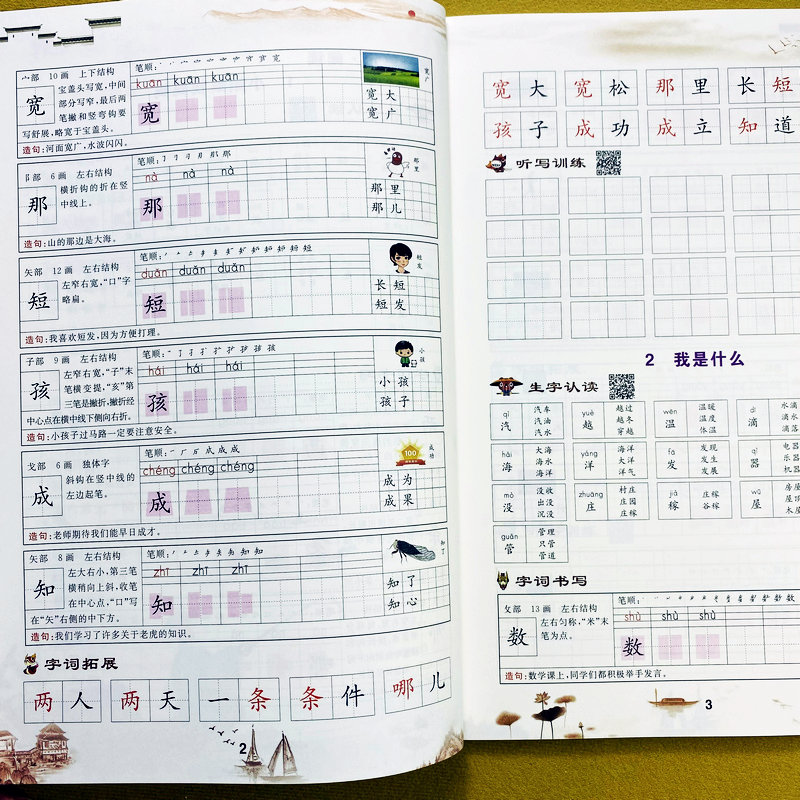 宀部 10画 上下结构
宽
宝盖头写宽,中间
部分写窄,最后两
笔撇和竖弯钩要
写舒展,略宽于宝盖头。
笔顺:
kuān kuān kuān
宽
宽广
宽大
宽广
造句:河面宽广,水波闪闪。
阝部 6画 左右结构
那
横折钩的折在竖
中线上。
笔顺:
nà nà nà
那
那里
那里
那儿
造句:山的那边是大海。
矢部 12画 左右结构
短
左窄右宽,“口”字
略扁。
笔顺:
duǎn duǎn duǎn
短
短发
长短
短发
造句:我喜欢短发,因为方便打理。
子部 9画 左右结构
孩
左窄右宽,“子”末
笔横变提,“亥”第
三笔是撇折,撇折经
中心点在横中线下侧向右折。
笔顺:
hái hái hái
孩
小孩
小孩
孩子
造句:小孩子过马路一定要注意安全。
戈部 6画 独体字
成
斜钩在竖中线的
左边起笔。
笔顺:
chéng chéng chéng
成
100
成功
成为
成果
造句:老师期待我们能早日成才。
矢部 8画 左右结构
知
左大右小,第三笔
横稍向上斜,收笔
在中心点,“口”写
在“矢”右侧的中下方。
笔顺:
zhī zhī zhī
知
知了
知了
知心
造句:我们学习了许多关于老虎的知识。
字词拓展
两人 两天 一条 条件 哪儿
2
宽大 宽松 那里 长短
孩子 成功 成立 知道
听写训练
2 我是什么
生字认读
qì 汽 汽车 汽油 汽水
yuè 越 越过 越冬 穿越
wēn 温 温暖 温度 体温
dī 滴 水滴
hǎi 海 大海 海水 海洋
yáng 洋 海洋 大洋 洋气
fā 发 发现 发生 发展
qì 器 电器 乐器 机器
mò 没 没收 出没 沉没
zhuāng 庄 村庄 庄园 庄稼
jià 稼 庄稼 谷稼
wū 屋 房屋 屋顶 木屋
guǎn 管 管理 只管 管道
字词书写
攵部 13画 左右结构
数
左右匀称,“米”末
笔为点。
笔顺:
shù shù shù
数
造句:数学课上,同学们都积极举手发言。
3